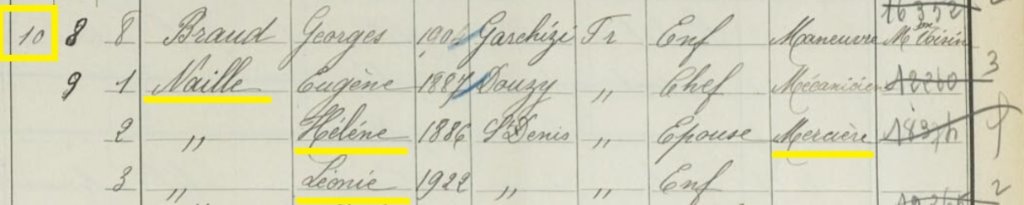 10 8 8 Braud Georges 190 Garchizi Fr Enf Maneuvre
9 1 Naille Eugène 1887 Douzy " Chef Mécanicien 18260 3
2 " Hélène 1886 St Denis " Epouse Mercière
3 " Léonie 1922 " " Enf 2